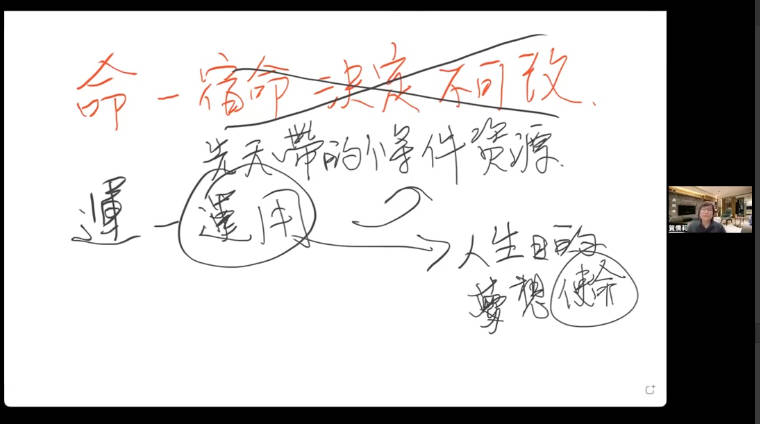 命－宿命 決定 不可改.
先天帶的條件資源.
運－運用
人生目的
夢想 使命